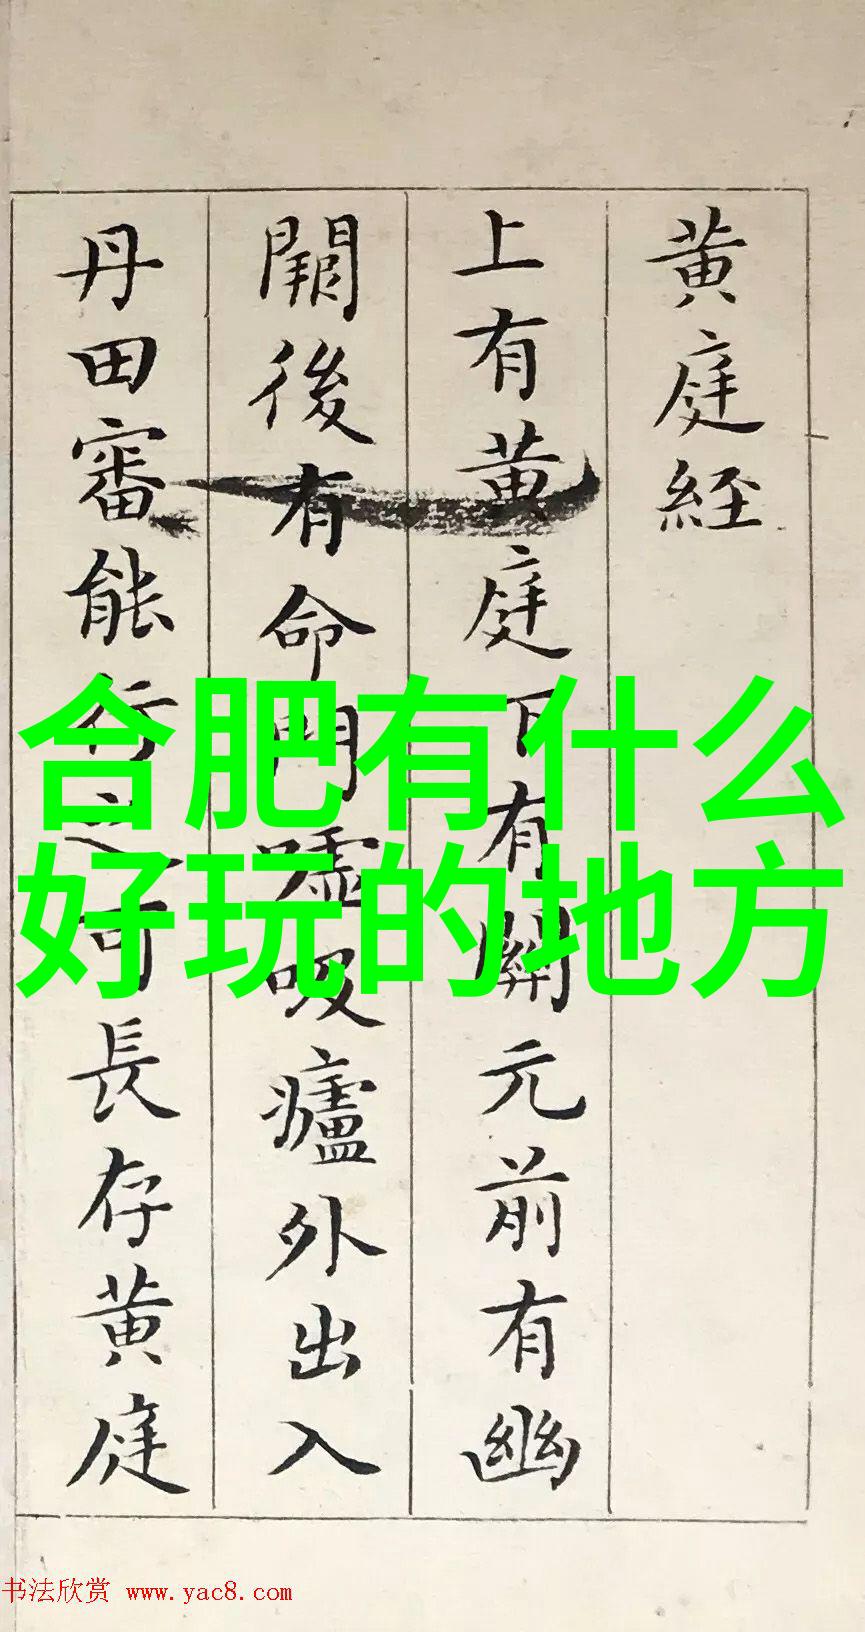 黄庭経
上有黄庭下有關元前有幽
闕後有命門嘘吸廬外出入
丹田審能行之可長存黄庭
合肥有什么
好玩的地方
书法欣赏 www.yac8.com